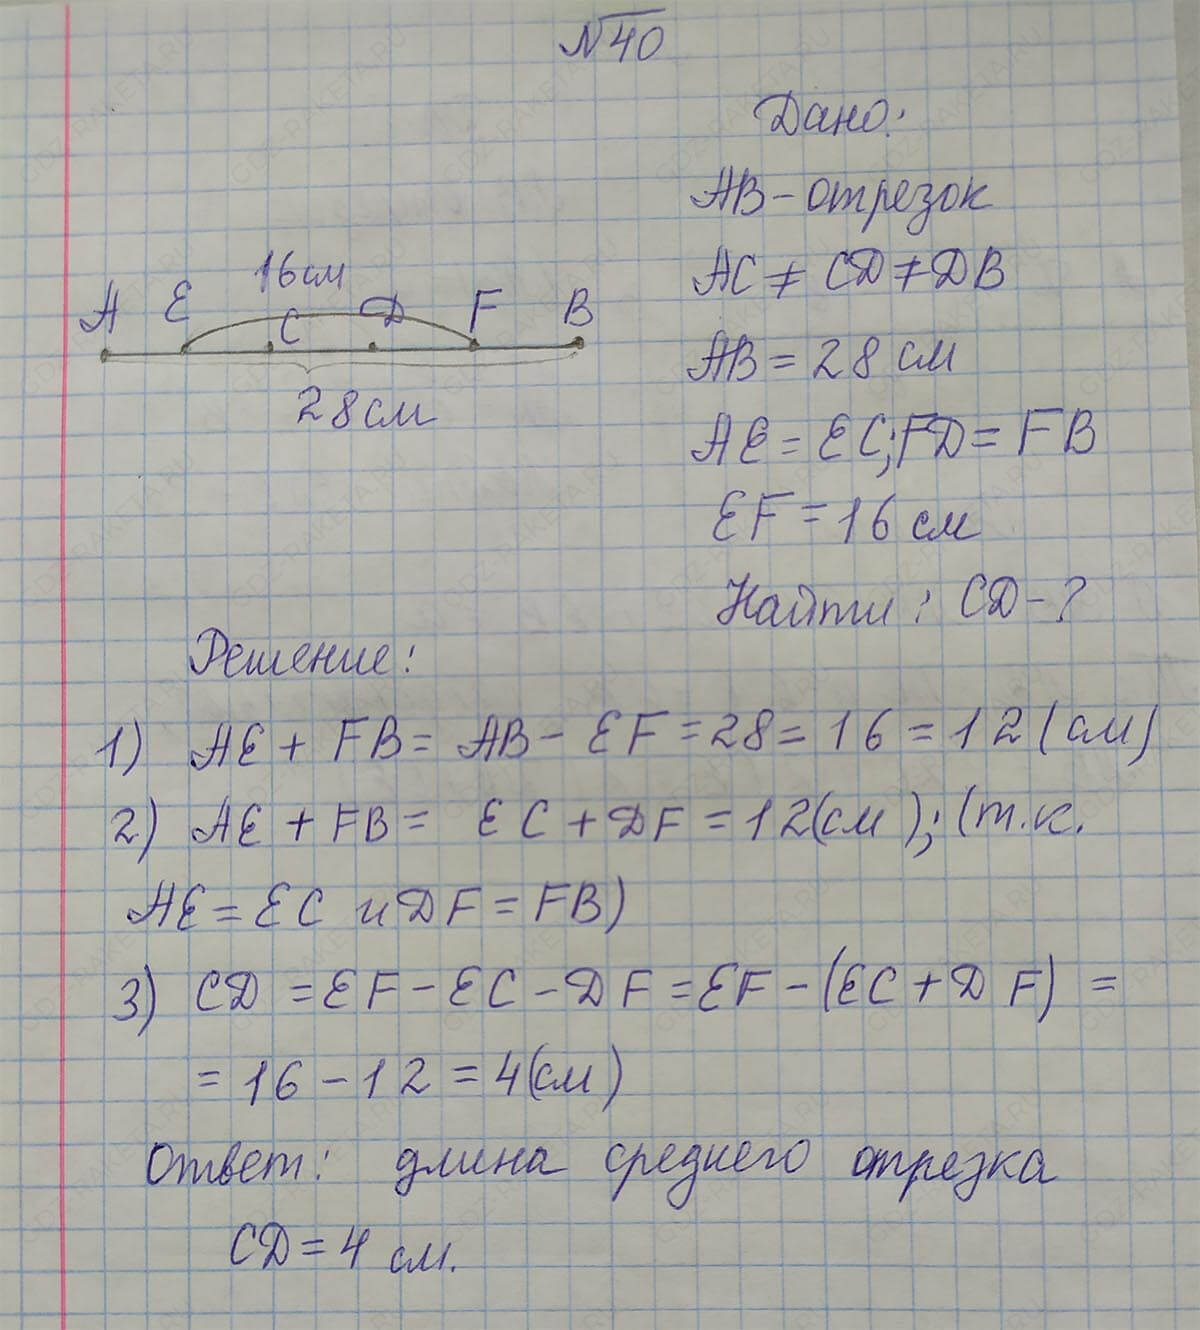 №40
Дано:
AB - отрезок
AC ≠ CD ≠ DB
AB = 28 см
AE = EC; FD = FB
EF = 16 см
Найти: CD - ?
16 см
A E C D F B
28 см
Решение:
1) AE + FB = AB - EF = 28 = 16 = 12 (см)
2) AE + FB = EC + DF = 12 (см); (т.к.
AE = EC и DF = FB)
3) CD = EF - EC - DF = EF - (EC + DF) =
= 16 - 12 = 4 (см)
Ответ: длина среднего отрезка
CD = 4 см.